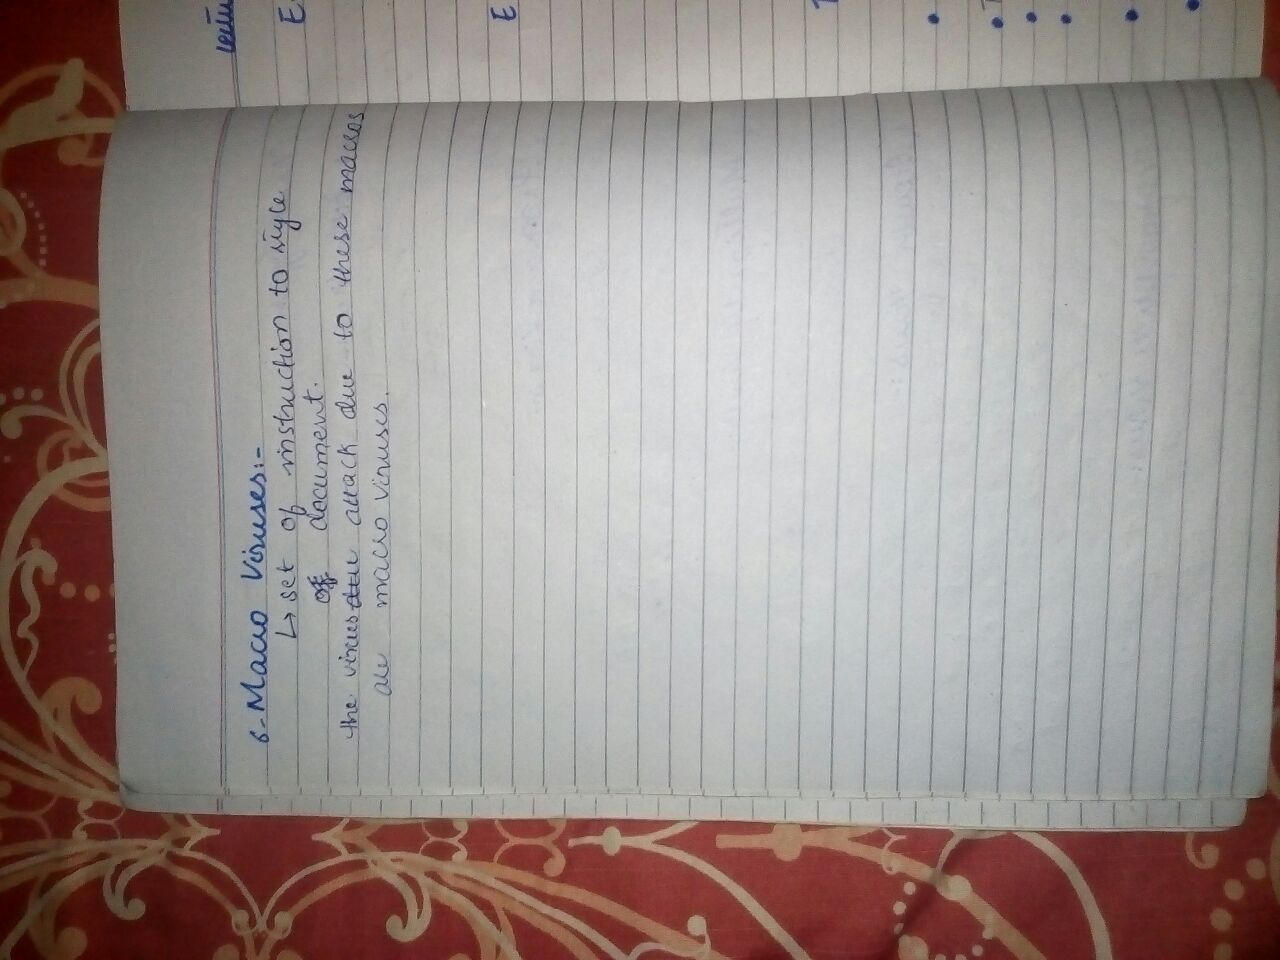 6- Macro Viruses:-
↳ set of instruction to style
of document.
the virus attack due to these macros
are macro viruses.
E
E
T